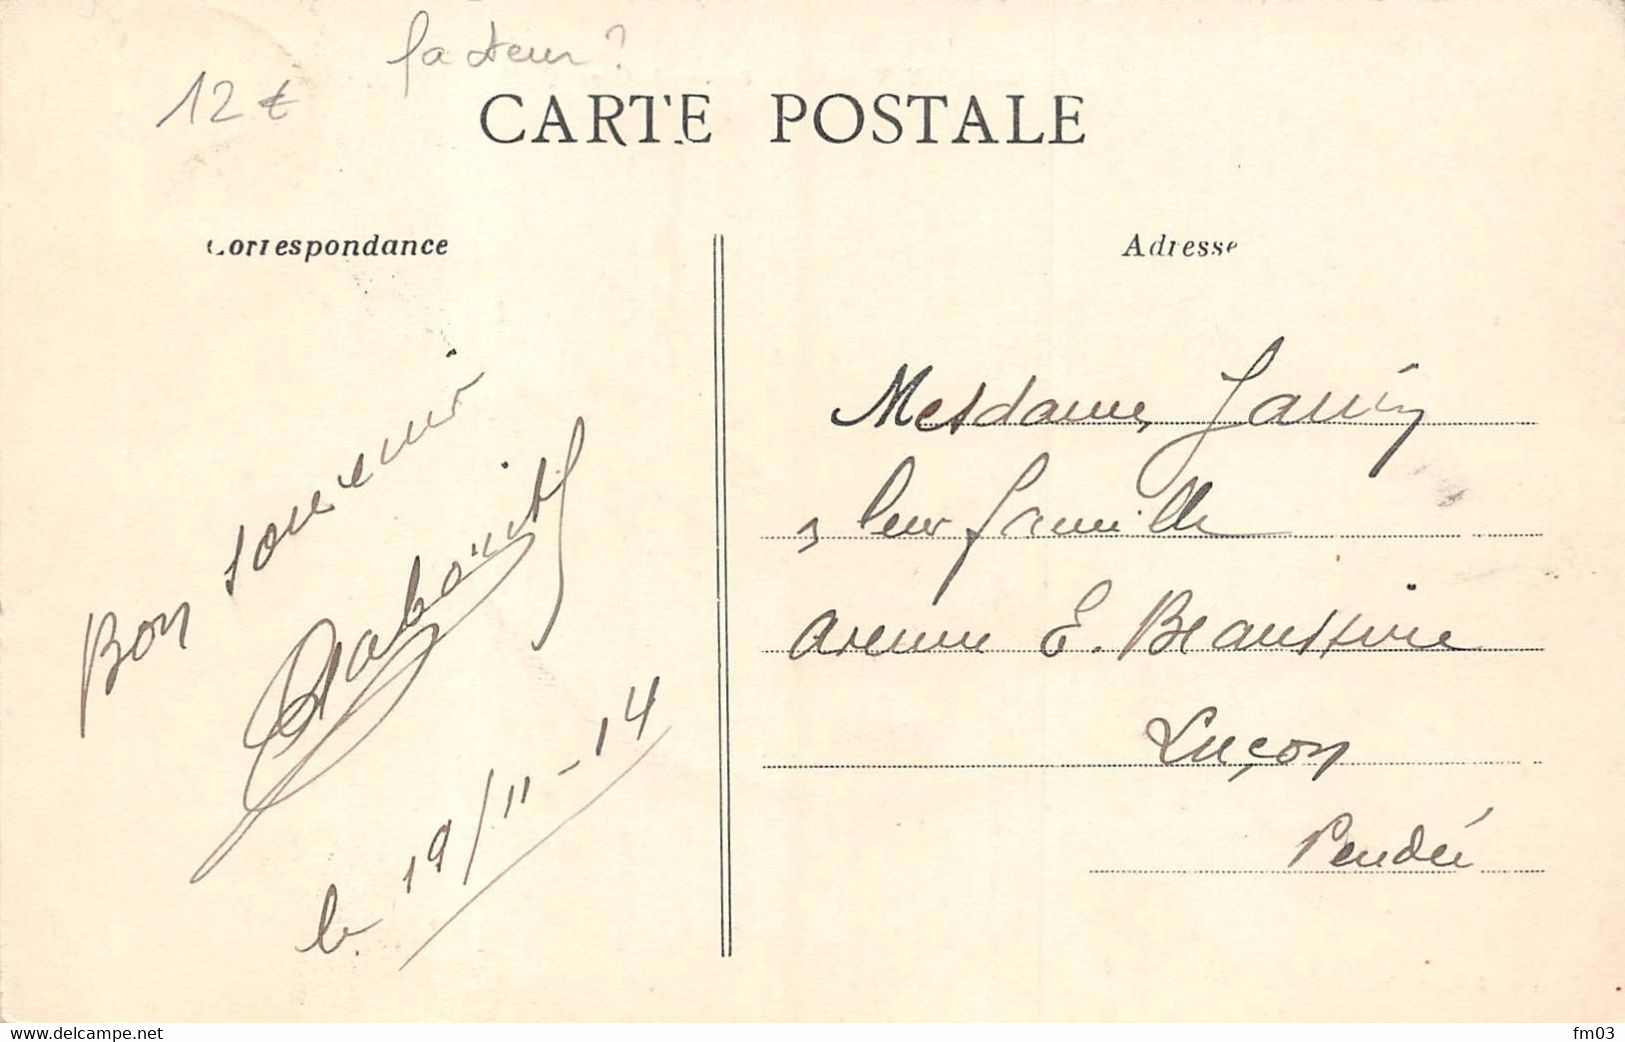 facteur?
12 €
CARTE POSTALE
Correspondance
Adresse
Bon souvenir
le 19/11-14
Mesdames
& leur famille
Avenue E. Beaussire
Luçon
Vendée
www.delcampe.net
fm03